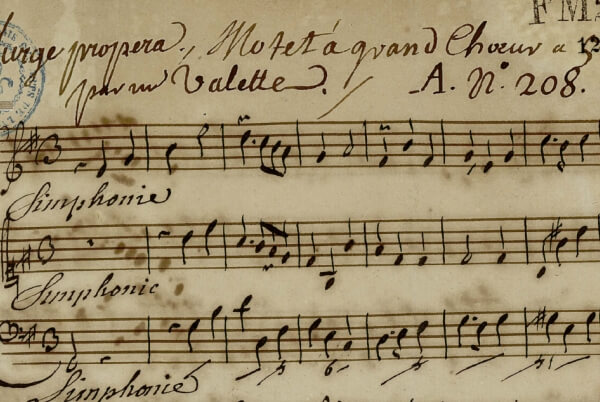 FM
urge propera., Motet à grand Chœur a 12
par mr Valette. A. N.° 208.
Simphonie
Simphonie
Simphonie